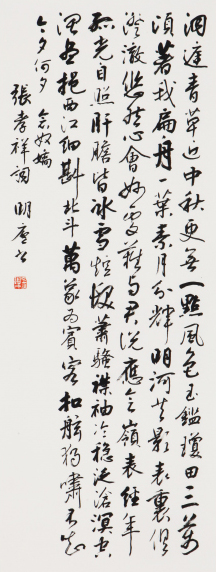 洞庭青草近中秋更無一點風色玉鑑瓊田三萬
頃著我扁舟一葉素月分輝明河共影表裏俱
澄澈悠然心會妙處難與君說應念嶺表經年
孤光自照肝膽皆冰雪短髮蕭騷襟袖冷穩泛滄溟空
濶盡挹西江細斟北斗萬象為賓客扣舷獨嘯不知
今夕何夕 念奴嬌
張孝祥詞 明